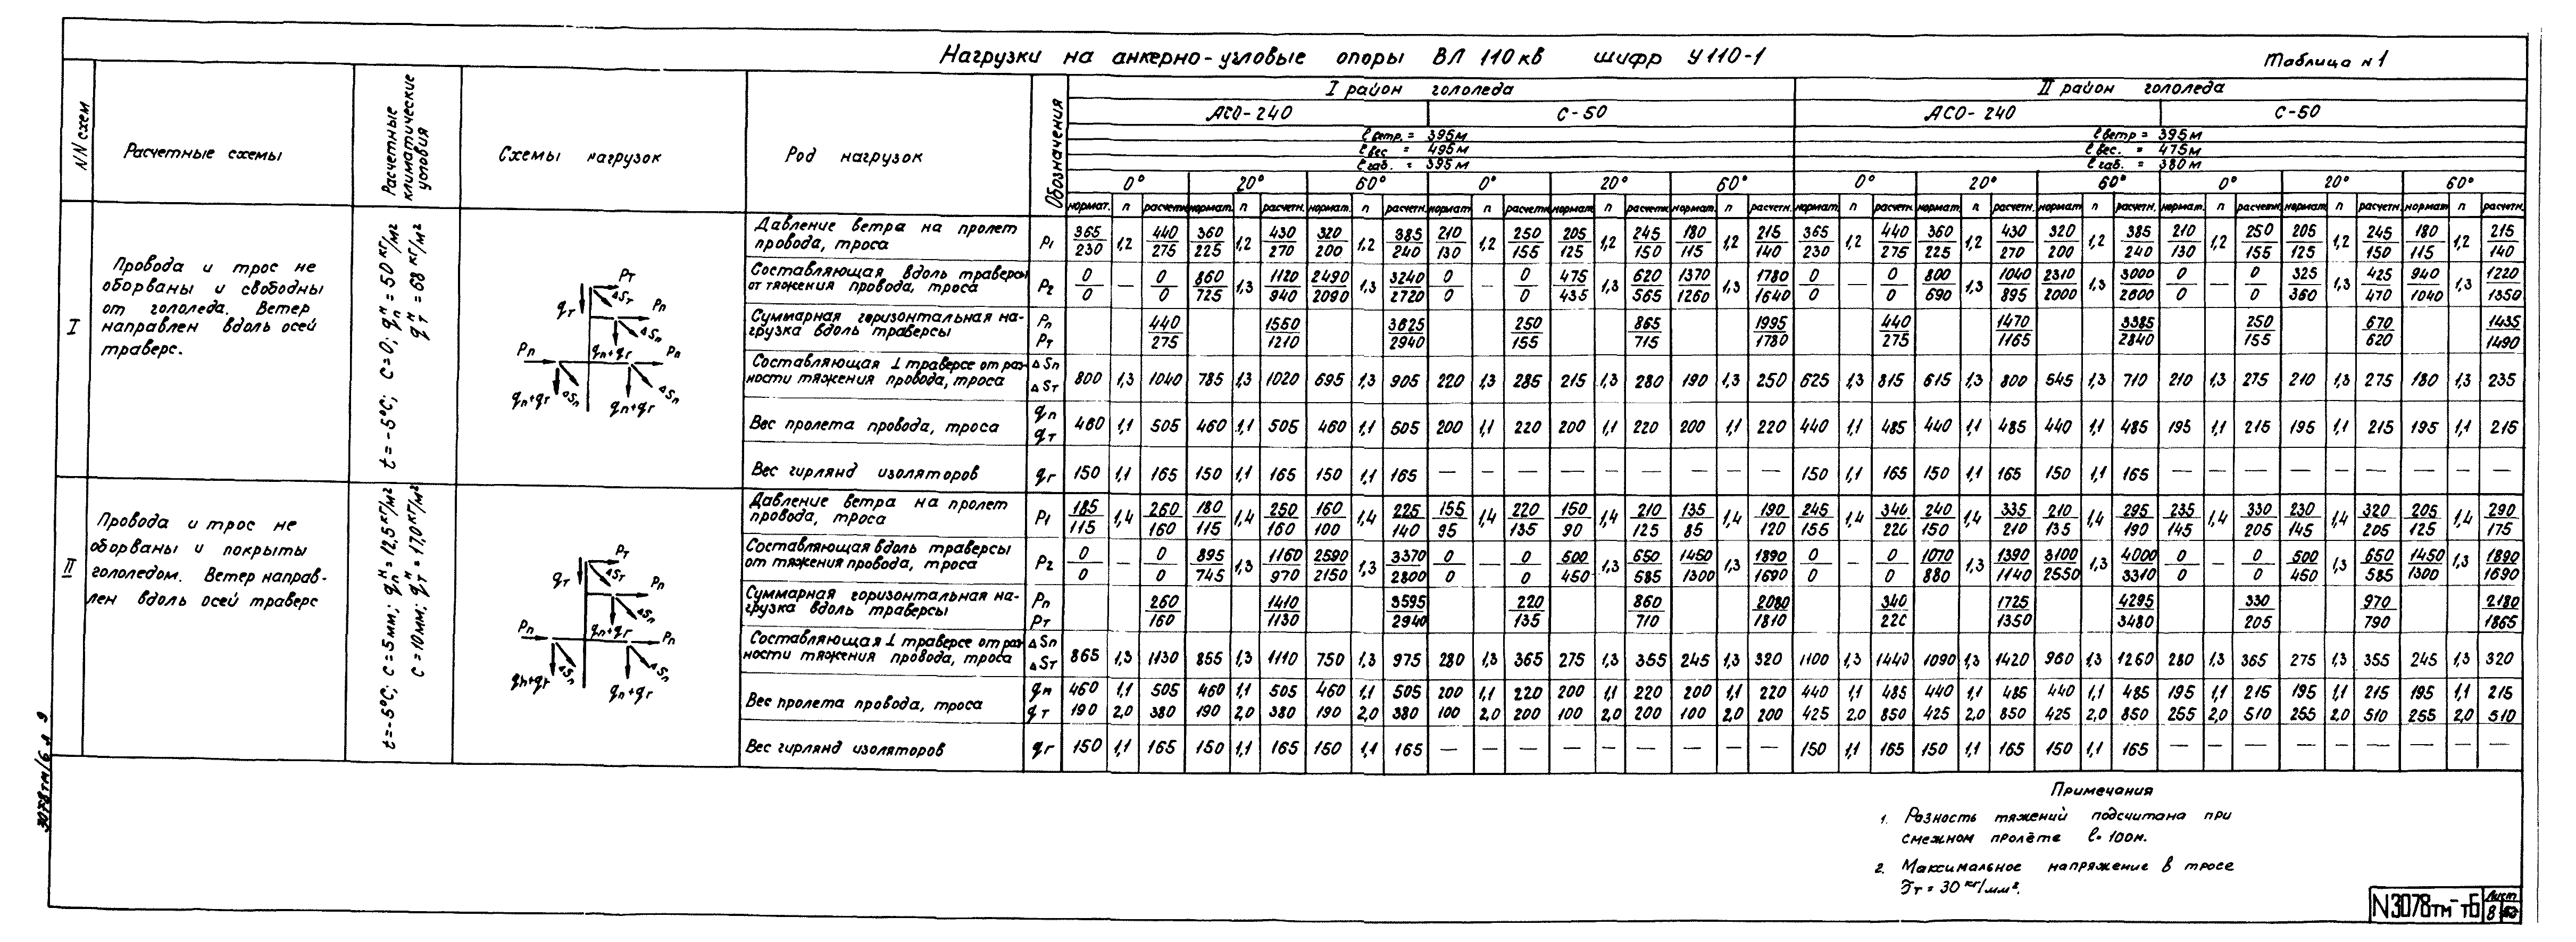 Нагрузки на анкерно-угловые опоры ВЛ 110 кв шифр У110-1
Таблица н 1
NN схем
Расчетные схемы
Расчетные климатические условия
Схемы нагрузок
Род нагрузок
Обозначения
I район гололеда
II район гололеда
АСО-240 С-50 АСО-240 С-50
ℓ ветр. = 395 м ℓ ветр = 395 м
ℓ вес = 495 м ℓ вес. = 475 м
ℓ габ. = 395 м ℓ габ. = 380 м
0° 20° 60° 0° 20° 60° 0° 20° 60° 0° 20° 60°
нормат. n расчетн. нормат. n расчетн. нормат. n расчетн. нормат. n расчетн. нормат. n расчетн. нормат. n расчетн. нормат. n расчетн. нормат. n расчетн. нормат. n расчетн. нормат. n расчетн. нормат. n расчетн. нормат. n расчетн.
I
Провода и трос не
оборваны и свободны
от гололеда. Ветер
направлен вдоль осей
траверс.
t = -5°C; C=0; qп н = 50 кг/м²
qт н = 68 кг/м²
Pт
qт ΔSт Pп
ΔSп
Pп qп+qг Pп
qп+qг ΔSп qп+qг ΔSп
Давление ветра на пролет
провода, троса
P1
365 440 360 430 320 385 210 250 205 245 180 215 365 440 360 430 320 385 210 250 205 245 180 215
1,2 1,2 1,2 1,2 1,2 1,2 1,2 1,2 1,2 1,2 1,2 1,2
230 275 225 270 200 240 130 155 125 150 115 140 230 275 225 270 200 240 130 155 125 150 115 140
Составляющая вдоль траверсы
от тяжения провода, троса
P2
0 0 860 1120 2490 3240 0 0 475 620 1370 1780 0 0 800 1040 2310 3000 0 0 325 425 940 1220
— 1,3 1,3 — 1,3 1,3 — 1,3 1,3 — 1,3 1,3
0 0 725 940 2090 2720 0 0 435 565 1260 1640 0 0 690 895 2000 2600 0 0 360 470 1040 1350
Суммарная горизонтальная на-
грузка вдоль траверсы
Pп 440 1550 3625 250 865 1995 440 1470 3385 250 670 1435
Pт 275 1210 2940 155 715 1780 275 1165 2840 155 620 1490
Составляющая ⊥ траверсе от раз-
ности тяжения провода, троса
ΔSп
ΔSт
800 1,3 1040 785 1,3 1020 695 1,3 905 220 1,3 285 215 1,3 280 190 1,3 250 625 1,3 815 615 1,3 800 545 1,3 710 210 1,3 275 210 1,3 275 180 1,3 235
Вес пролета провода, троса
qп
qт
460 1,1 505 460 1,1 505 460 1,1 505 200 1,1 220 200 1,1 220 200 1,1 220 440 1,1 485 440 1,1 485 440 1,1 485 195 1,1 215 195 1,1 215 195 1,1 215
Вес гирлянд изоляторов
qг 150 1,1 165 150 1,1 165 150 1,1 165 — — — — — — — — — 150 1,1 165 150 1,1 165 150 1,1 165 — — — — — — — — —
II
Провода и трос не
оборваны и покрыты
гололедом. Ветер направ-
лен вдоль осей траверс
t = -5°C; C = 5 мм; qп н = 12,5 кг/м²
C = 10 мм; qт н = 17,0 кг/м²
Pт
qт ΔSт Pп
ΔSп
Pп qп+qг Pп
qп+qг ΔSп qп+qг ΔSп
Давление ветра на пролет
провода, троса
P1
185 260 180 250 160 225 155 220 150 210 135 190 245 340 240 335 210 295 235 330 230 320 205 290
1,4 1,4 1,4 1,4 1,4 1,4 1,4 1,4 1,4 1,4 1,4 1,4
115 160 115 160 100 140 95 135 90 125 85 120 155 220 150 210 135 190 145 205 145 205 125 175
Составляющая вдоль траверсы
от тяжения провода, троса
P2
0 0 895 1160 2590 3370 0 0 500 650 1450 1890 0 0 1070 1390 3100 4000 0 0 500 650 1450 1890
— 1,3 1,3 — 1,3 1,3 — 1,3 1,3 — 1,3 1,3
0 0 745 970 2150 2800 0 0 450 585 1300 1690 0 0 880 1140 2550 3310 0 0 450 585 1300 1690
Суммарная горизонтальная на-
грузка вдоль траверсы
Pп 260 1410 3595 220 860 2080 340 1725 4295 330 970 2180
Pт 160 1130 2940 135 710 1810 220 1350 3480 205 790 1865
Составляющая ⊥ траверсе от раз-
ности тяжения провода, троса
ΔSп
ΔSт
865 1,3 1130 855 1,3 1110 750 1,3 975 280 1,3 365 275 1,3 355 245 1,3 320 1100 1,3 1440 1090 1,3 1420 960 1,3 1260 280 1,3 365 275 1,3 355 245 1,3 320
Вес пролета провода, троса
qп 460 1,1 505 460 1,1 505 460 1,1 505 200 1,1 220 200 1,1 220 200 1,1 220 440 1,1 485 440 1,1 485 440 1,1 485 195 1,1 215 195 1,1 215 195 1,1 215
qт 190 2,0 380 190 2,0 380 190 2,0 380 100 2,0 200 100 2,0 200 100 2,0 200 425 2,0 850 425 2,0 850 425 2,0 850 255 2,0 510 255 2,0 510 255 2,0 510
Вес гирлянд изоляторов
qг 150 1,1 165 150 1,1 165 150 1,1 165 — — — — — — — — — 150 1,1 165 150 1,1 165 150 1,1 165 — — — — — — — — —
Примечания
1. Разность тяжений подсчитана при
смежном пролёте ℓ=100м.
2. Максимальное напряжение в тросе
σт = 30 кг/мм².
3078тм/6 л 9
N3078тм-т6
Лист
8